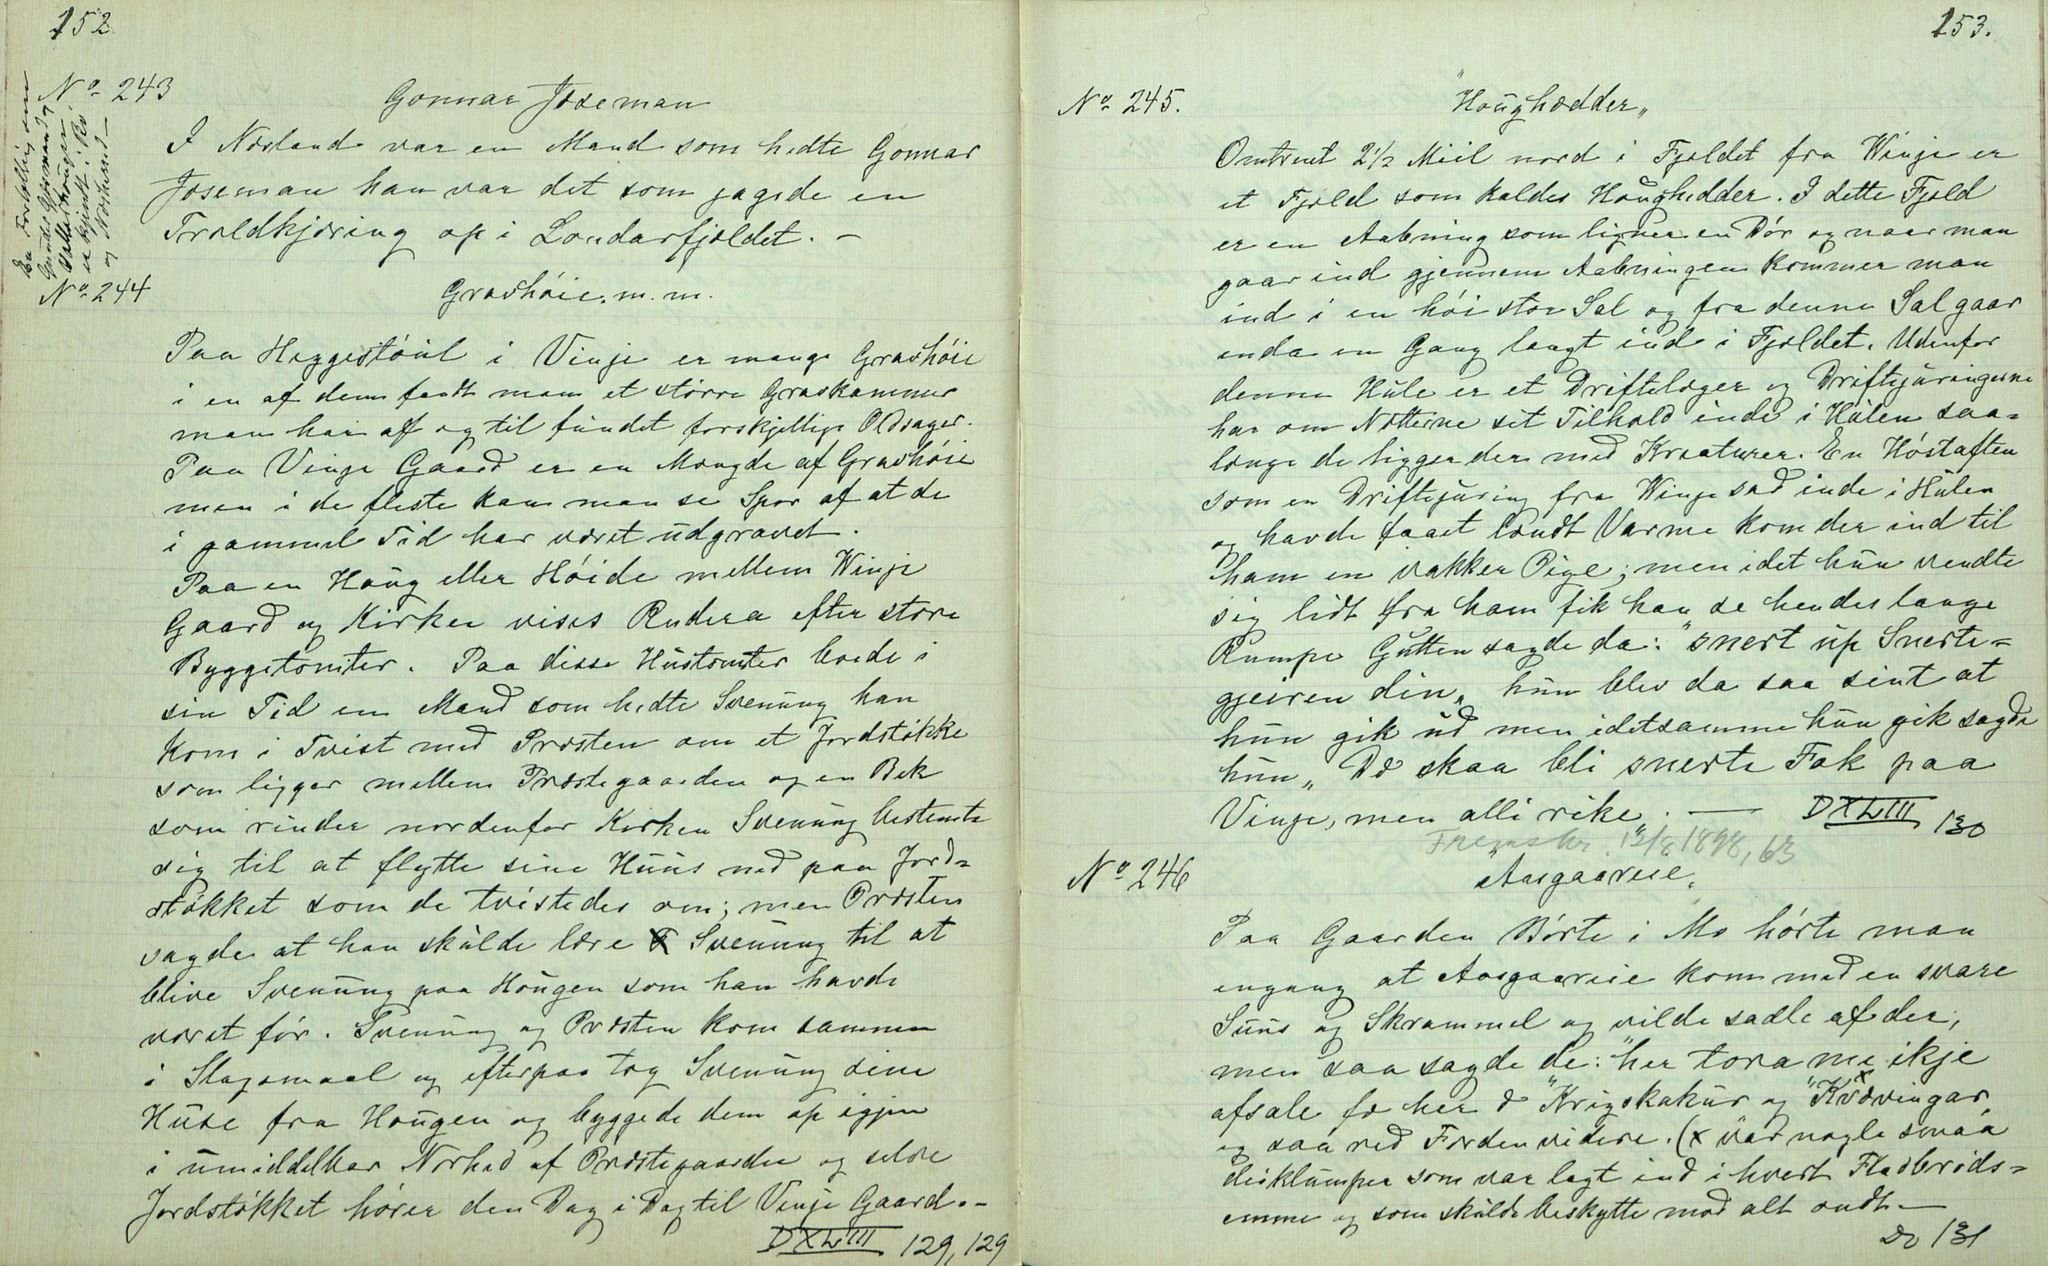 152.
No 243
Gonnar Joseman
I Nesland var en Mand som hedte Gonnar
Joseman han var det som jagede en
Troldkjæring op i Londarfjeldet. —
No 244
Gravhöie. m. m.
Paa Heggestöul i Vinje er mange Gravhöie
i en af dem fandt man et större Gravkammer
man har af og til fundet forskjellige Oldsager.
Paa Vinje Gaard er en Mængde af Gravhöie
men i de fleste kan man se Spor af at de
i gammel Tid har været udgravet.
Paa en Houg eller Höide mellem Winje
Gaard og Kirken vises Rudera efter store
Byggetomter. Paa disse Hustomter boede i
sin Tid en Mand som hedte Svenung han
kom i Tvist med Præsten om et Jordstökke
som ligger mellem Præstegaarden og en Bek
som rinder nordenfor Kirken Svenung bestemte
sig til at flytte sine Huus ned paa Jord=
stökket som de tvistedes om; men Præsten
sagde at han skulde lære Svenung til at
blive Svenung paa Hougen som han havde
været för. Svenung og Præsten kom sammen
i Slagsmaal og efterpaa tog Svenung sine
Huse fra Hougen og byggede dem op igjen
i umiddelbar Nærhed af Præstegaarden og selve
Jordstökket hörer den Dag i Dag til Vinje Gaard. —
DXLIII 129, 129
153.
No 245.
"Houghedder"
Omtrent 2 1/2 Miil nord i Fjeldet fra Winje er
et Fjeld som kaldes Houghedder. I dette Fjeld
er en Aabning som ligner en Dör og naar man
gaar ind gjennem Aabningen kommer man
ind i en höi stor Sal og fra denne Sal gaar
enda en Gang langt ind i Fjeldet. Udenfor
denne Hule er et Driftelæger og Driftejuringerne
har om Nætterne sit Tilhold inde i Hulen saa=
længe de ligger der med Kreaturer. En Höstaften
som en Driftejuring fra Winje sad inde i Hulen
og havde faaet tændt Varme kom der ind til
ham en vakker Pige; men idet hun vendte
sig lidt fra ham fik han se hendes lange
Rumpe Gutten sagde da: "snert up Snerte=
gjeiren din" hun blev da saa sint at
hun gik ud men idetsamme hun gik sagde
hun "Dæ skaa bli snerte Fok paa
Vinje, men alli rike". — DXLIII 130
Fremskr. 12/8 1898, 63
No 246
"Aasgaareie"
Paa Gaarden Börte i Mo hörte man
engang at Aasgaareie kom med en svare
Suus og Skrammel og vilde sadle af der,
men saa sagde de: "her tora me ikje
afsale fe her æ "Krigskakur og "Kvævingar"
og saa red Færden videre. (x var nogle smaa
deiklumper som var lagt ind i hvert Fladbröds=
emne og som skulde beskytte mod alt ondt —
Do 131